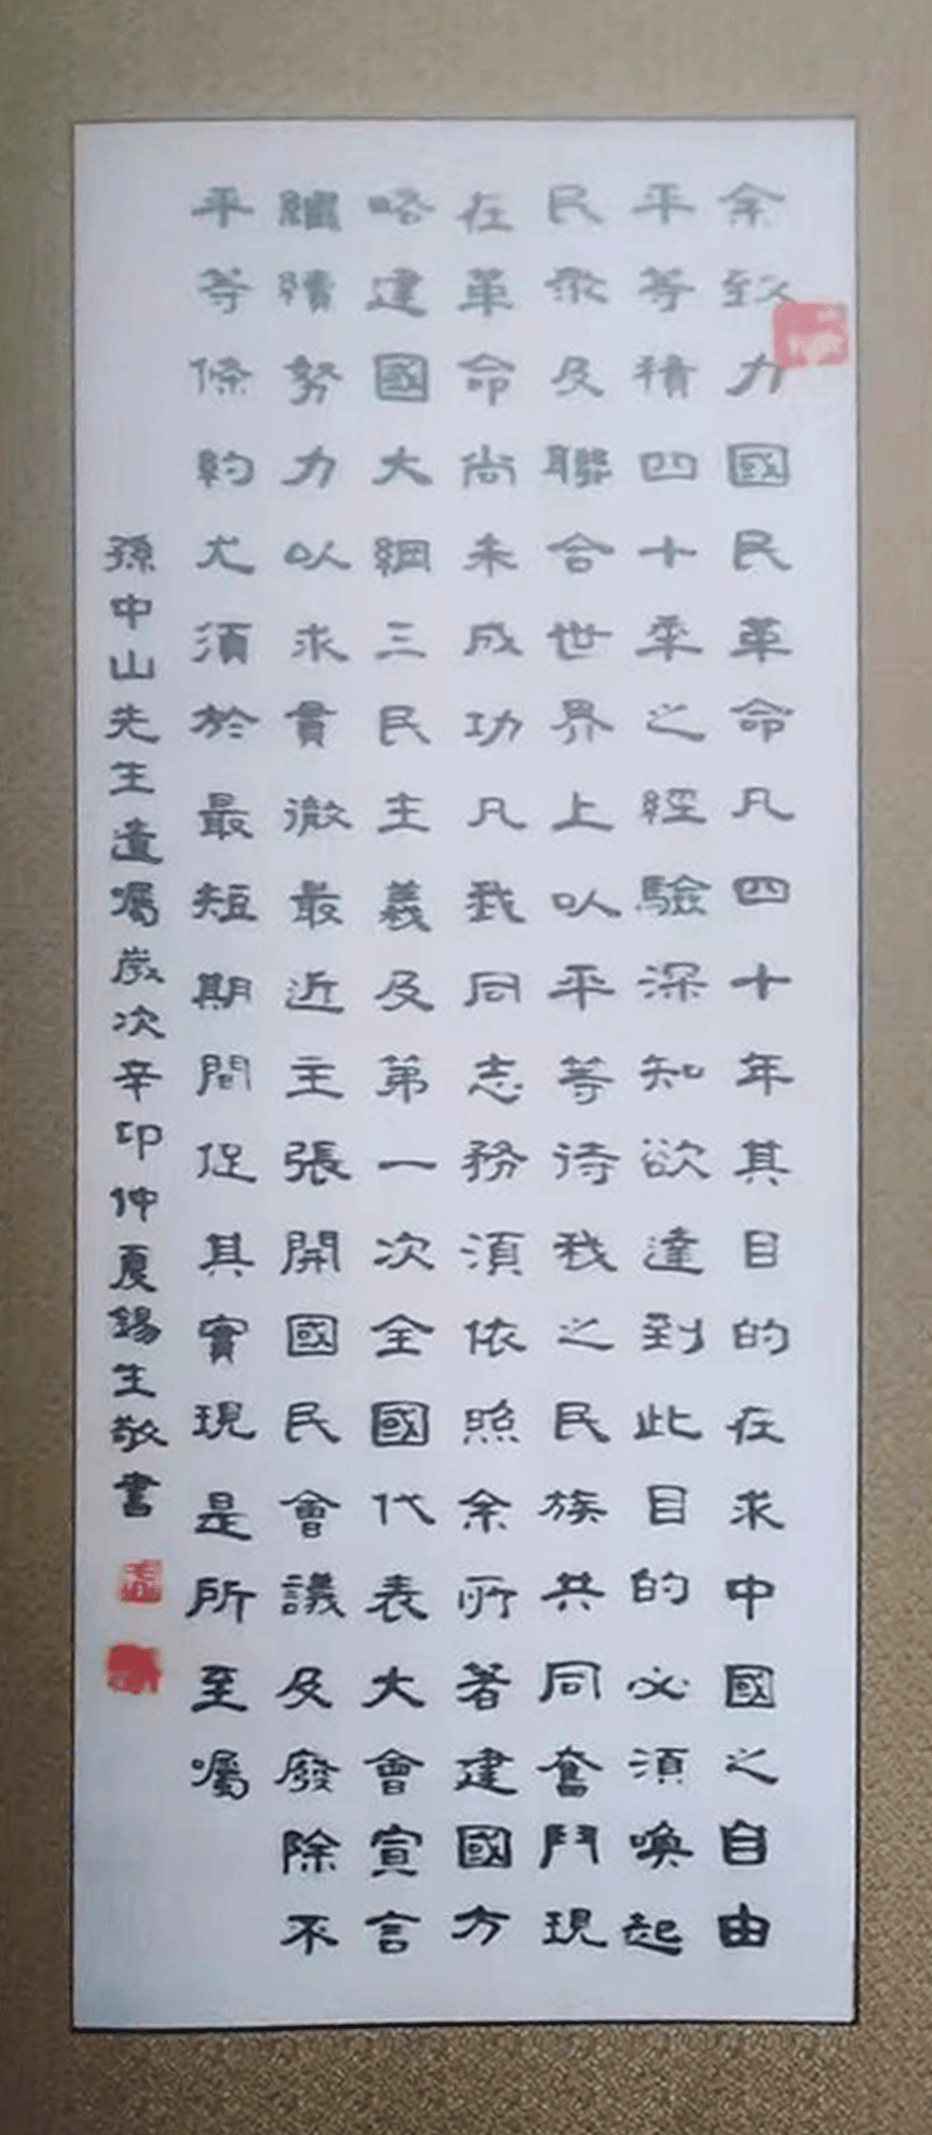 余致力國民革命凡四十年其目的在求中國之自由
平等積四十年之經驗深知欲達到此目的必須喚起
民眾及聯合世界上以平等待我之民族共同奮鬥現
在革命尚未成功凡我同志務須依照余所著建國方
略建國大綱三民主義及第一次全國代表大會宣言
繼續努力以求貫徹最近主張開國民會議及廢除不
平等條約尤須於最短期間促其實現是所至囑
孫中山先生遺囑歲次辛卯仲夏錫生敬書